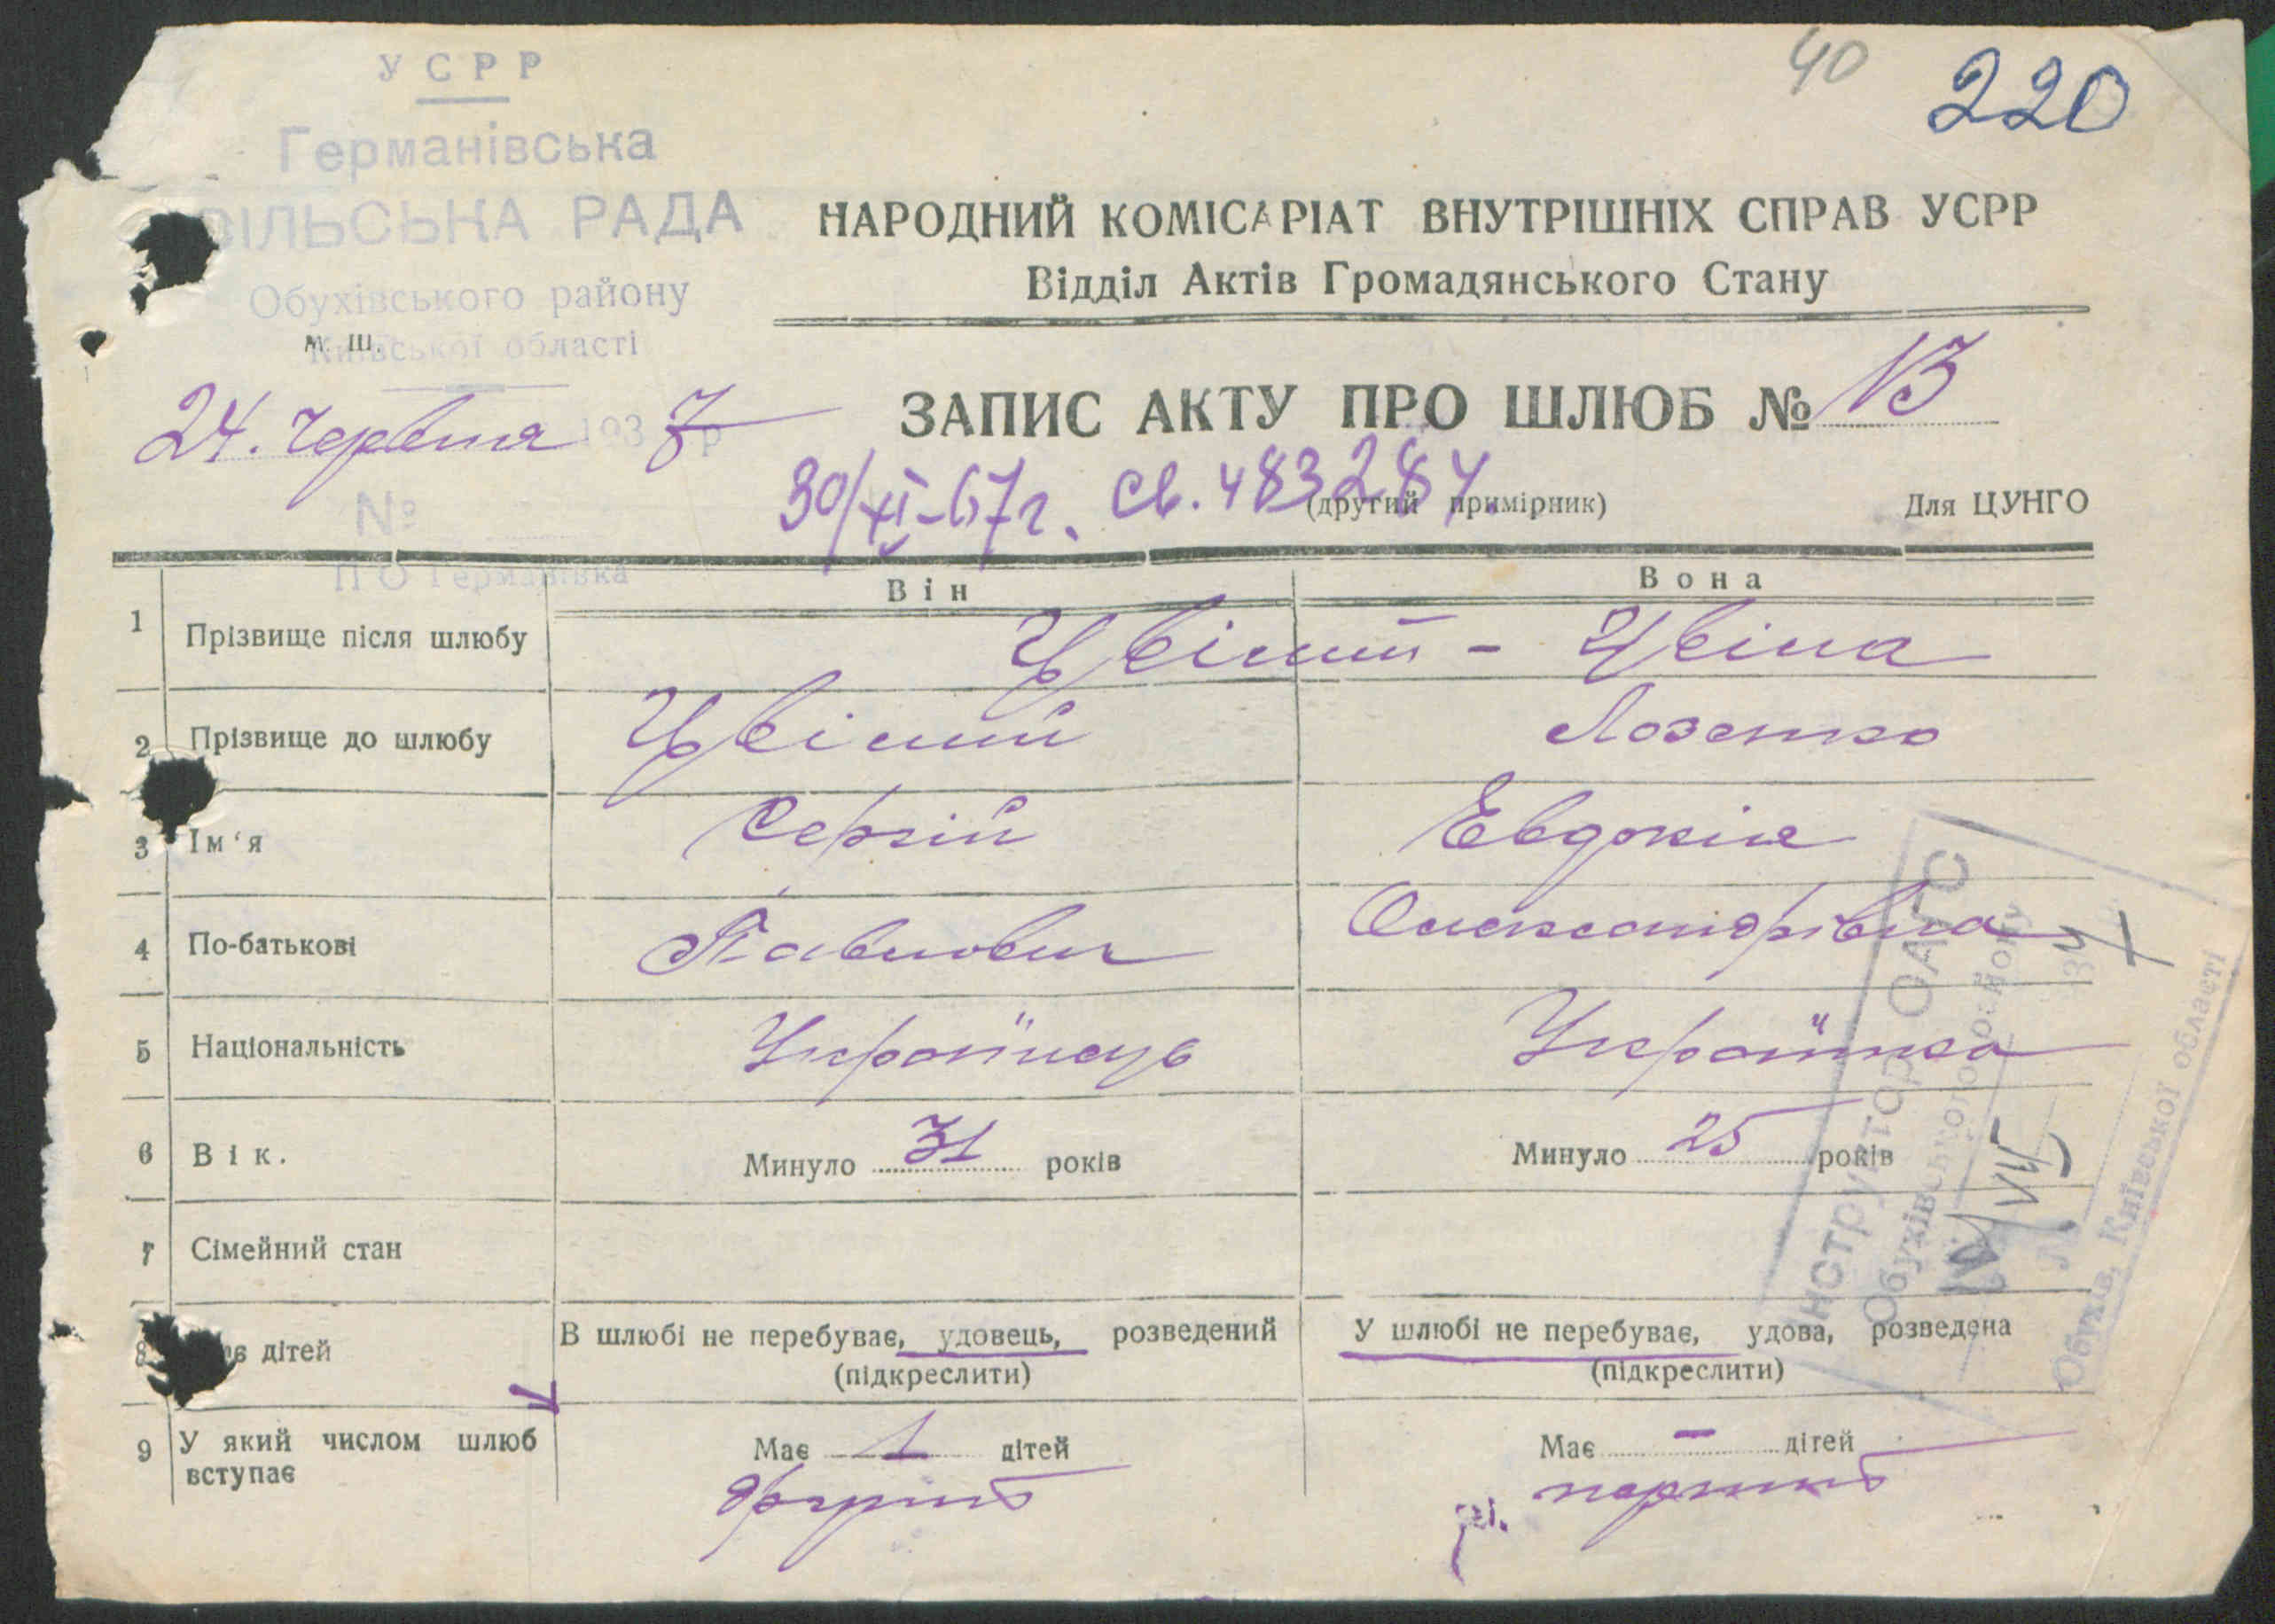 40 220
УСРР
Германівська
СІЛЬСЬКА РАДА
Обухівського району
Київської області
м. ш.
24. Червня 1937 р
№
П О Германівка
НАРОДНИЙ КОМІСАРІАТ ВНУТРІШНІХ СПРАВ УСРР
Відділ Актів Громадянського Стану
ЗАПИС АКТУ ПРО ШЛЮБ № 13
30/XI-67г. Св. 483284.
(другий примірник) Для ЦУНГО
Він Вона
1 Прізвище після шлюбу Цвіний - Цвіна
2 Прізвище до шлюбу Цвіний Лозенко
3 Ім‘я Сергій Евдокія
4 По-батькові Павлович Олександрівна
5 Національність Українець Українка
6 Вік. Минуло 31 років Минуло 25 років
7 Сімейний стан
8 дітей В шлюбі не перебуває, удовець, розведений У шлюбі не перебуває, удова, розведена
(підкреслити) (підкреслити)
9 У який числом шлюб вступає Має 1 дітей Має – дітей
другий перший
Інструктор ОАГС
Обухівського району
Обухів, Київської області